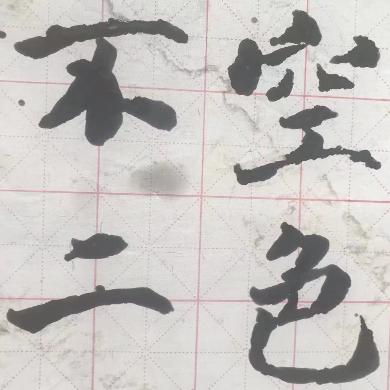 空色
不二